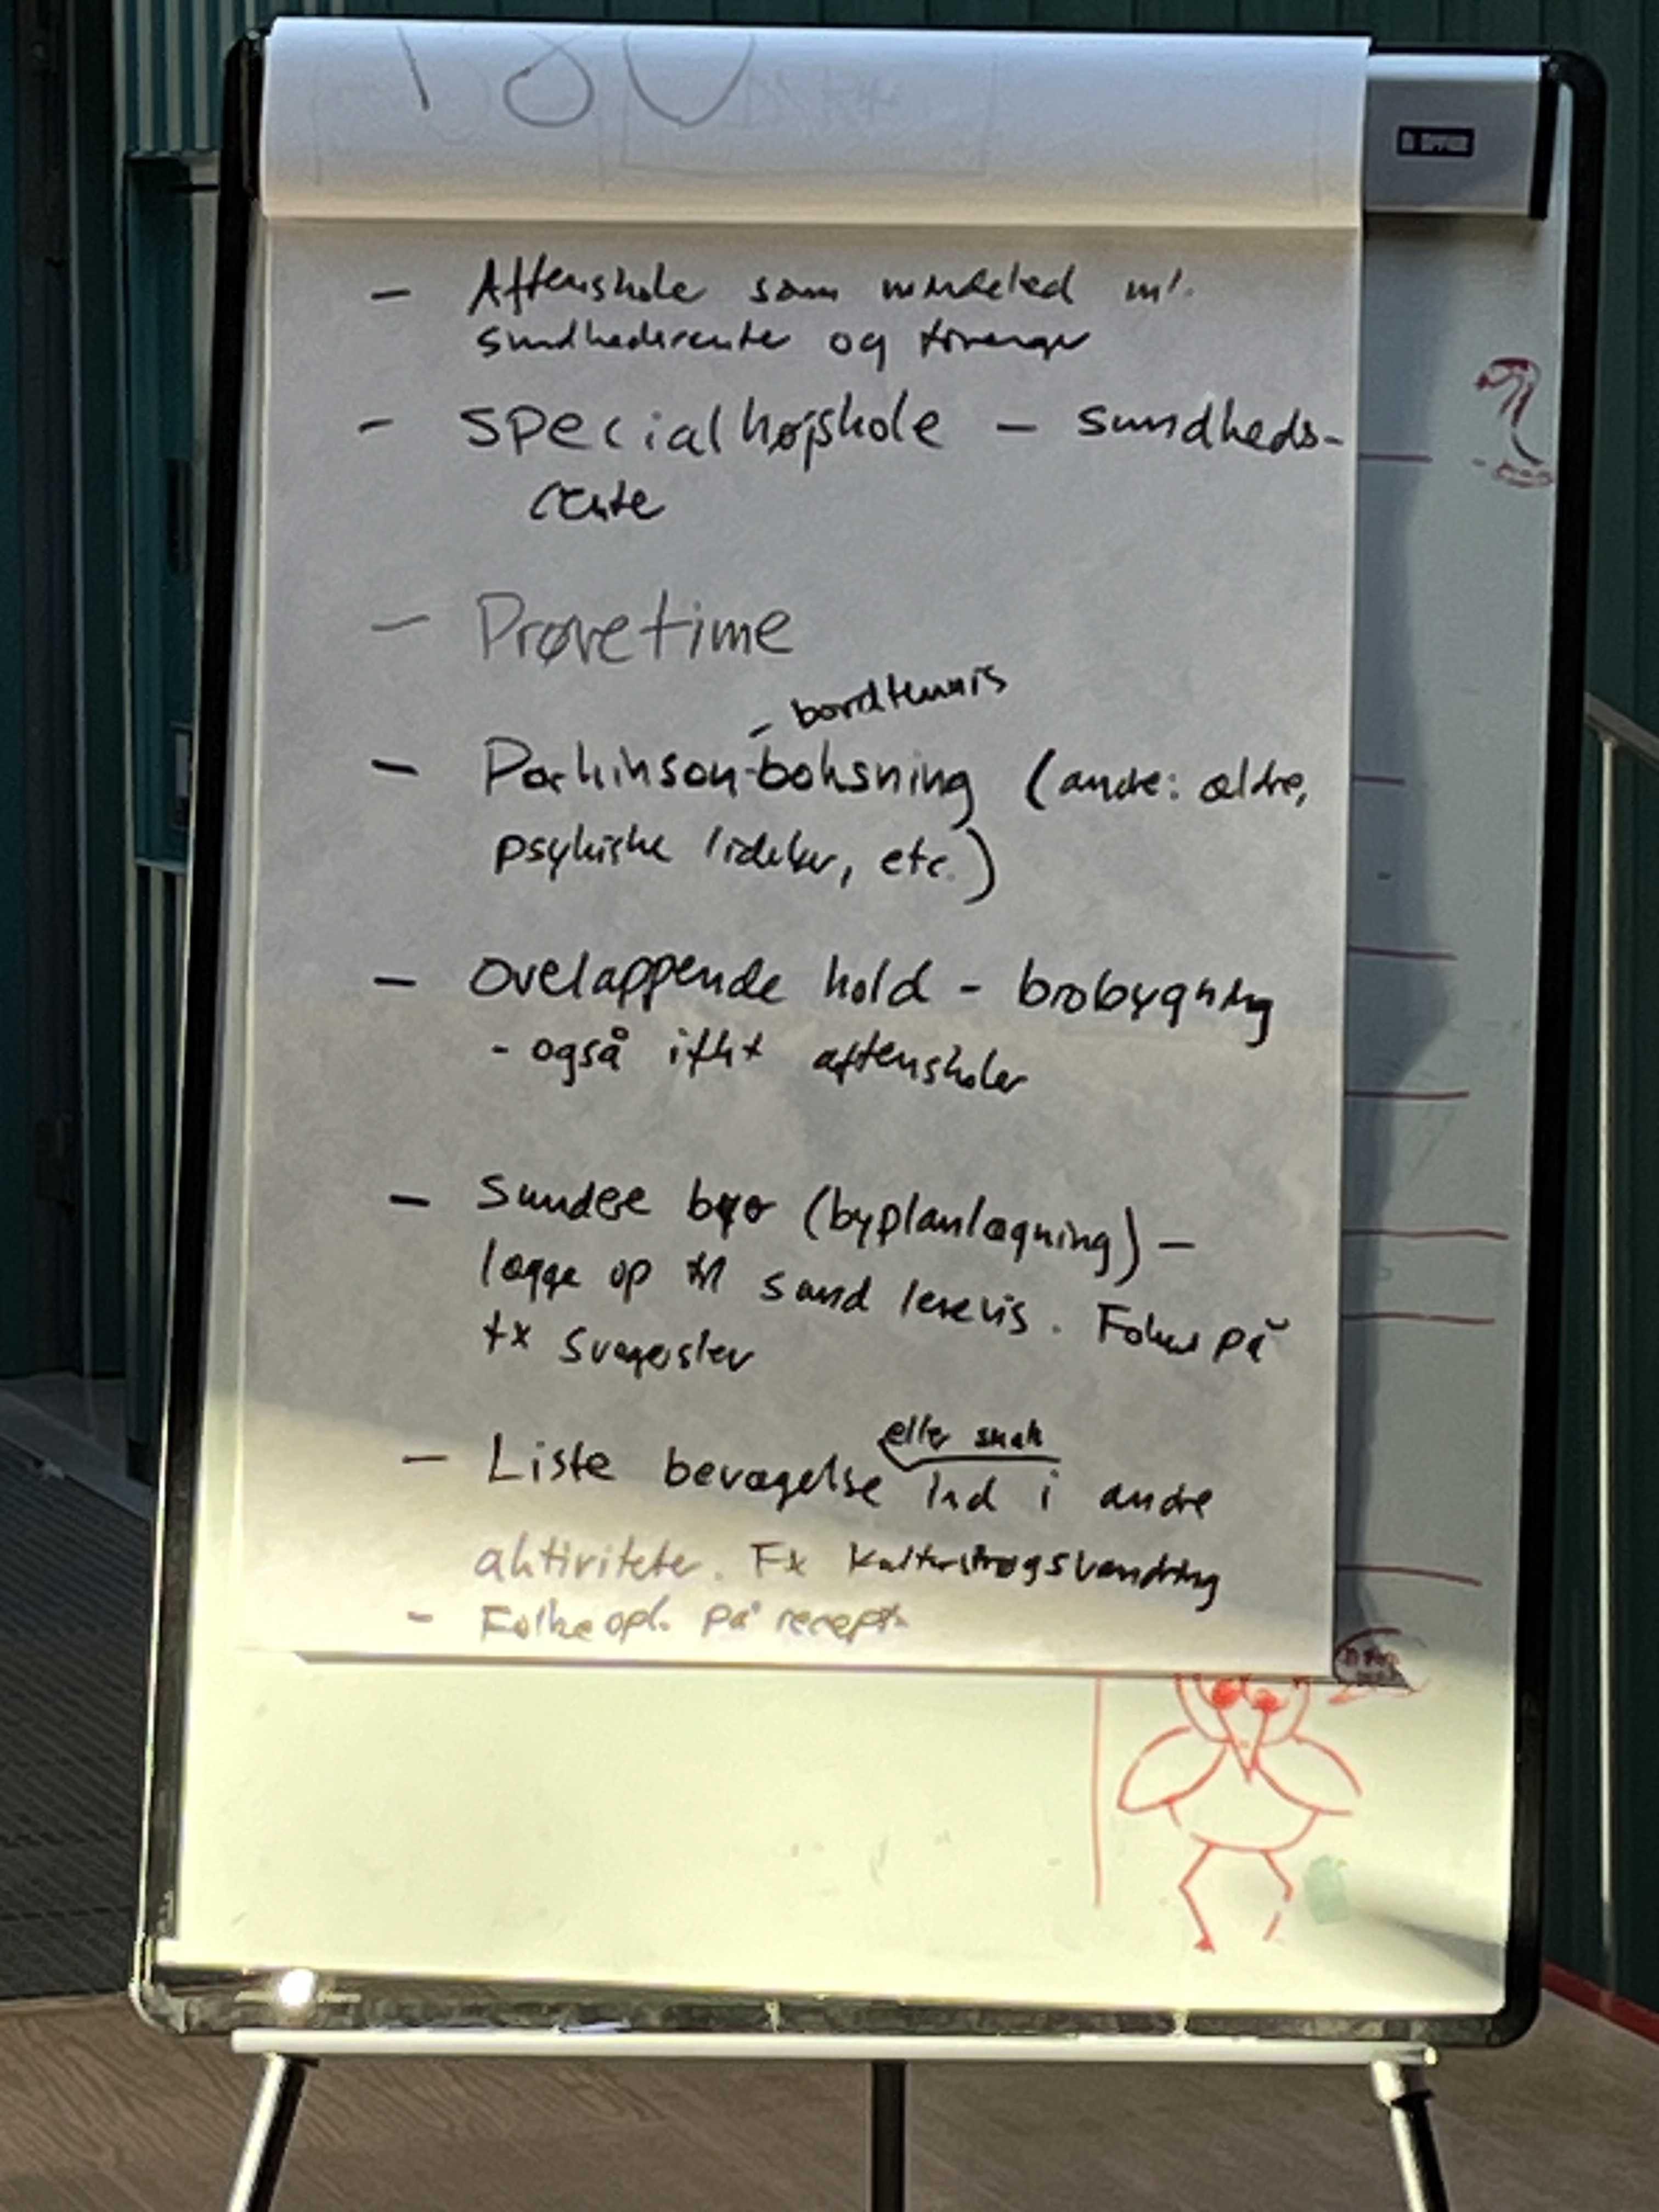 - Aftenskole som m/.
sundhedscenter og
- Specialhøjskole - Sundheds-
center
- Prøvetime
- bordtennis
- Parkinson-boksning (andre: ældre,
psykiske lidelser, etc.)
- Ovelappende hold - brobygning
- også ifht aftenskoler
- Sundere byer (byplanlægning) -
lægge op til sund levevis. Fokus på
fx svageslev
eller snak
- Liste bevægelse ind i andre
aktiviteter. Fx Kulturstrøgsvandring
- Folkeopl. på recept